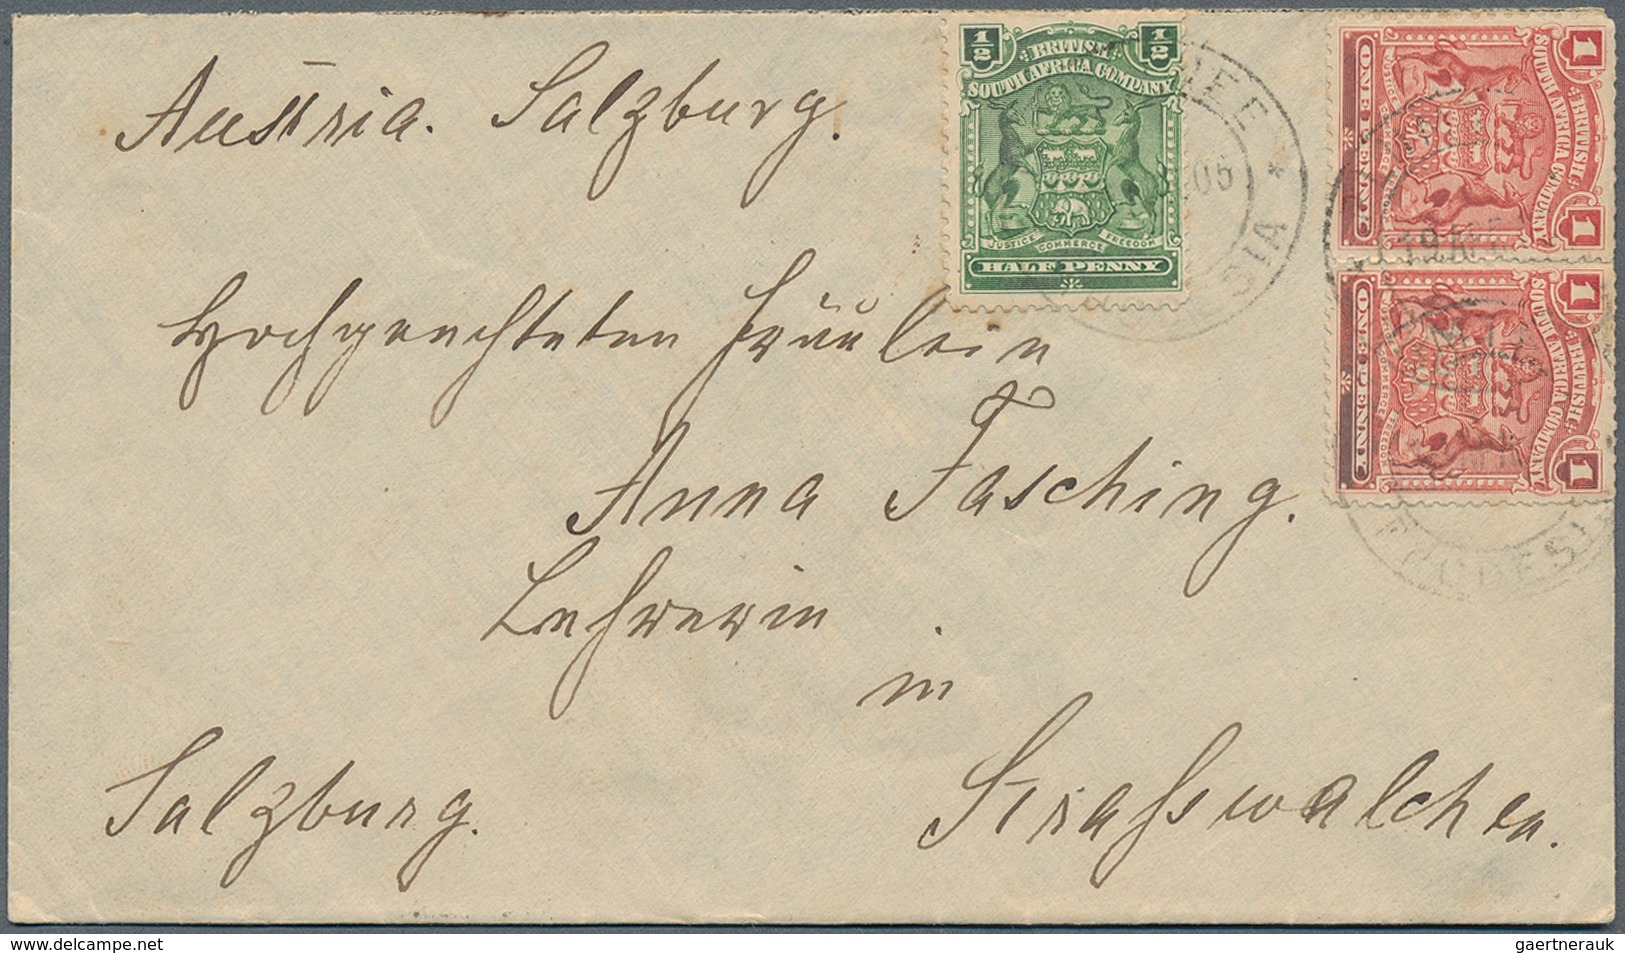 Austria. Salzburg.
Hochgeachteten Fräulein
Anna Fasching.
Lehrerin
in
Salzburg. Strasswalchen.
1/2 1/2
BRITISH
SOUTH AFRICA COMPANY
JUSTICE COMMERCE FREEDOM
HALF PENNY
1 1
BRITISH
SOUTH AFRICA COMPANY
JUSTICE COMMERCE FREEDOM
ONE PENNY
1 1
BRITISH
SOUTH AFRICA COMPANY
COMMERCE FREEDOM
ONE PENNY
delcampe.net
gaertnerauk